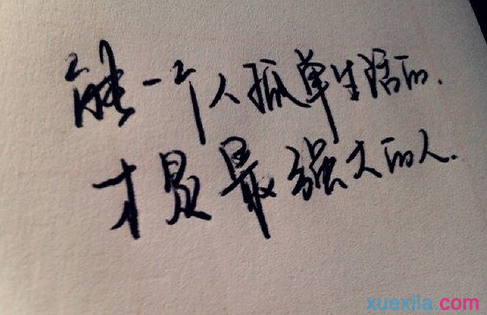 能一个人孤单生活的.
才是最强大的人.
xuexila.com